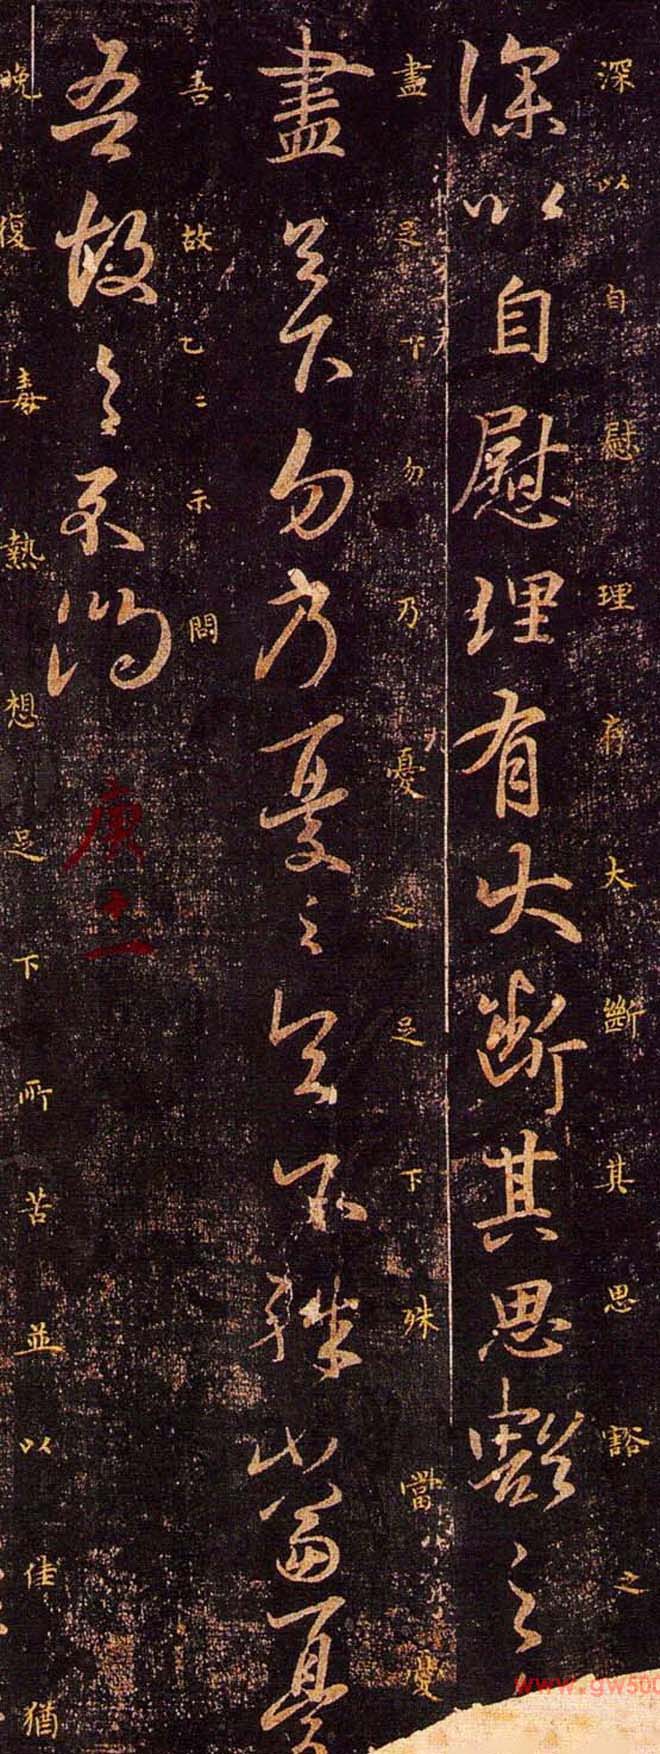 深以自慰理有大斷其思豁之
深以自慰理有大斷其思豁之
盡足下勿乃憂之足下殊當憂
盡足下勿乃憂之足下殊當憂
吾故乙二示問
吾故示問
庚
晚復毒熱想足下所苦並以佳猶
www.gw500